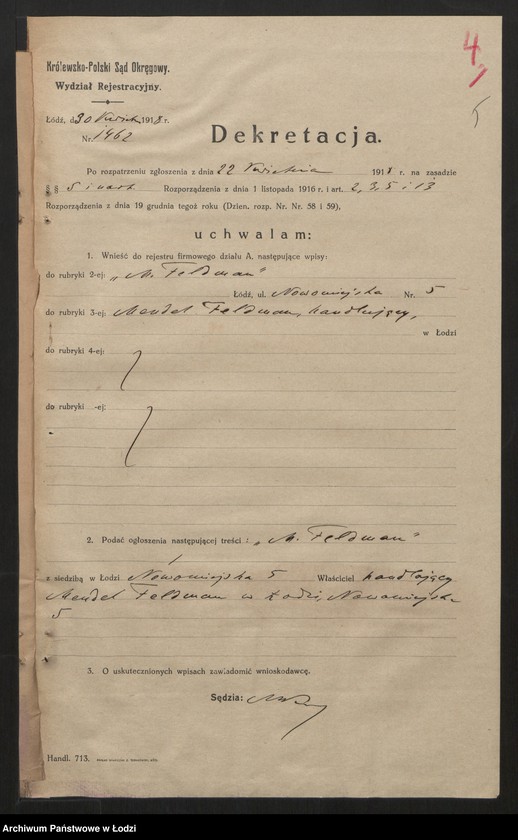 4,
5
Królewsko-Polski Sąd Okręgowy.
Wydział Rejestracyjny.
Łódź, d. 30 Kwietn 1918 r.
Nr. 1462
Dekretacja.
Po rozpatrzeniu zgłoszenia z dnia 22 Kwietnia 1918 r. na zasadzie
§ § 5 i nast. Rozporządzenia z dnia 1 listopada 1916 r. i art. 2, 3, 5 i 13
Rozporządzenia z dnia 19 grudnia tegoż roku (Dzien. rozp. Nr. Nr. 58 i 59),
uchwalam:
1. Wnieść do rejestru firmowego działu A. następujące wpisy:
do rubryki 2-ej: „M. Feldman"
Łódź, ul. Nowomiejska Nr. 5
do rubryki 3-ej: Mendel Feldman, handlujący,
w Łodzi
do rubryki 4-ej:
do rubryki -ej:
2. Podać ogłoszenia następującej treści: „M. Feldman"
z siedzibą w Łodzi Nowomiejska 5 Właściciel handlujący
Mendel Feldman w Łodzi, Nowomiejska
5
3. O uskutecznionych wpisach zawiadomić wnioskodawcę.
Sędzia:
Handl. 713.
Archiwum Państwowe w Łodzi